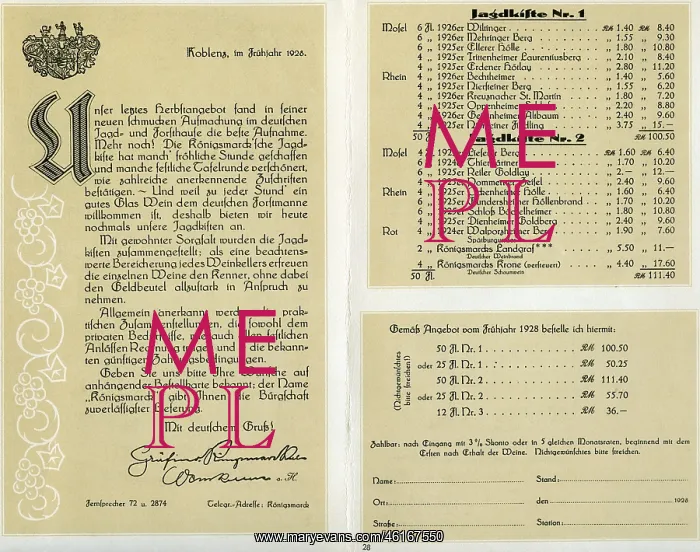 Koblenz, im Frühjahr 1928.
Unser letztes Herbstangebot fand in seiner
neuen schmucken Aufmachung im deutschen
Jagd- und Forsthause die beste Aufnahme.
Mehr noch! Die Königsmarck'sche Jagd-
kiste hat manch' fröhliche Stunde geschaffen
und manche festliche Tafelrunde verschönert,
wie zahlreiche anerkennende Zuschriften
bestätigen. ~ Und weil zu jeder Stund' ein
gutes Glas Wein dem deutschen Forstmanne
willkommen ist, deshalb bieten wir heute
nochmals unsere Jagdkisten an.
Mit gewohnter Sorgfalt wurden die Jagd-
kisten zusammengestellt; als eine beachtens-
werte Bereicherung jedes Weinkellers erfreuen
die einzelnen Weine den Kenner, ohne dabei
den Geldbeutel allzustark in Anspruch zu
nehmen.
Allgemein anerkannt werden prak-
tischen Zusammenstellungen, die sowohl dem
privaten Bedürfnisse, wie auch allen festlichen
Anlässen Rechnung tragen und die bekann-
ten günstigen Zahlungsbedingungen.
Geben Sie uns bitte Ihre Wünsche auf
anhängender Bestellkarte bekannt; der Name
„Königsmarck" gibt Ihnen die Bürgschaft
zuverlässigster Lieferung.
Mit deutschem Gruß!
Fernsprecher 72 u. 2874 Telegr.-Adresse: Königsmarck
Jagdkiste Nr. 1
Mosel 6 Fl. 1926er Wiltinger RM 1.40 RM 8.40
6 „ 1926er Mehringer Berg „ 1.55 „ 9.30
6 „ 1925er Ellerer Hölle „ 1.80 „ 10.80
4 „ 1925er Trittenheimer Laurentiusberg „ 2.10 „ 8.40
4 „ 1925er Erdener Höslay „ 2.80 „ 11.20
Rhein 4 „ 1926er Bechtheimer „ 1.40 „ 5.60
4 „ 1925er Niersteiner Berg „ 1.55 „ 6.20
4 „ 1926er Kreuznacher St. Martin „ 1.80 „ 7.20
4 „ 1925er Oppenheimer „ 2.20 „ 8.80
4 „ 1926er Geisenheimer Altbaum „ 2.40 „ 9.60
4 „ 1925er „ 3.75 „ 15.—
50 Fl. RM 100.50
Jagdkiste Nr. 2
Mosel 4 Berg RM 1.60 RM 6.40
6 „ „ 1.70 „ 10.20
6 „ 1925er Reiler Goldlay „ 2.— „ 12.—
4 „ „ 2.40 „ 9.60
Rhein 4 „ 1925er „ 1.60 „ 6.40
6 „ 1925er Höllenbrand „ 1.70 „ 10.20
6 „ 1925er Schloß Böckelheimer „ 1.80 „ 10.80
4 „ 1925er Dienheimer Goldberg „ 2.40 „ 9.60
Rot 4 „ 1924er Walporzheimer Berg „ 1.90 „ 7.60
Spätburgunder
2 „ Königsmarcks Landgraf*** „ 5.50 „ 11.—
Deutscher Weinbrand
4 „ Königsmarcks Krone (versteuert) „ 4.40 „ 17.60
Deutscher Schaumwein
50 Fl. RM 111.40
Gemäß Angebot vom Frühjahr 1928 bestelle ich hiermit:
(Nichtgewünschtes bitte streichen!)
50 Fl. Nr. 1 RM 100.50
oder 25 Fl. Nr. 1 „ 50.25
50 Fl. Nr. 2 RM 111.40
oder 25 Fl. Nr. 2 „ 55.70
12 Fl. Nr. 3 RM 36.—
Zahlbar: nach Eingang mit 3% Skonto oder in 5 gleichen Monatsraten, beginnend mit dem
Ersten nach Erhalt der Weine. Nichtgewünschtes bitte streichen.
Name: Stand:
Ort: den 1928
Straße: Station:
28
ME
PL
ME
PL
www.maryevans.com/46167550